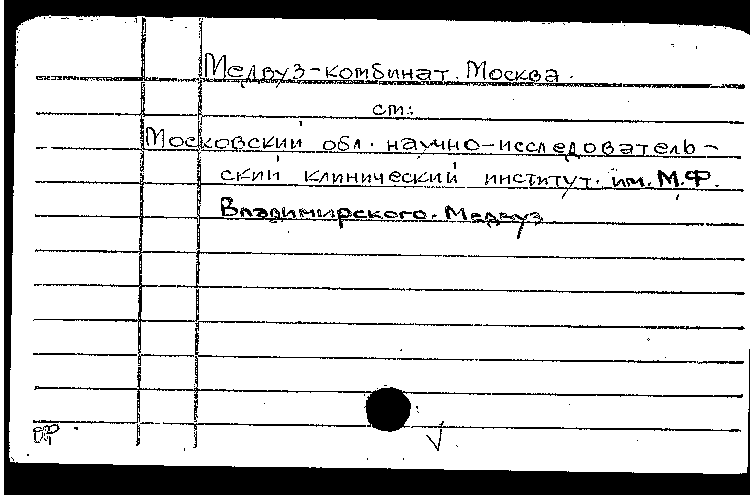 Медвуз-комбинат. Москва.
см:
Московский обл. научно-исследователь-
ский клинический институт. им. М.Ф.
Владимирского. Медвуз